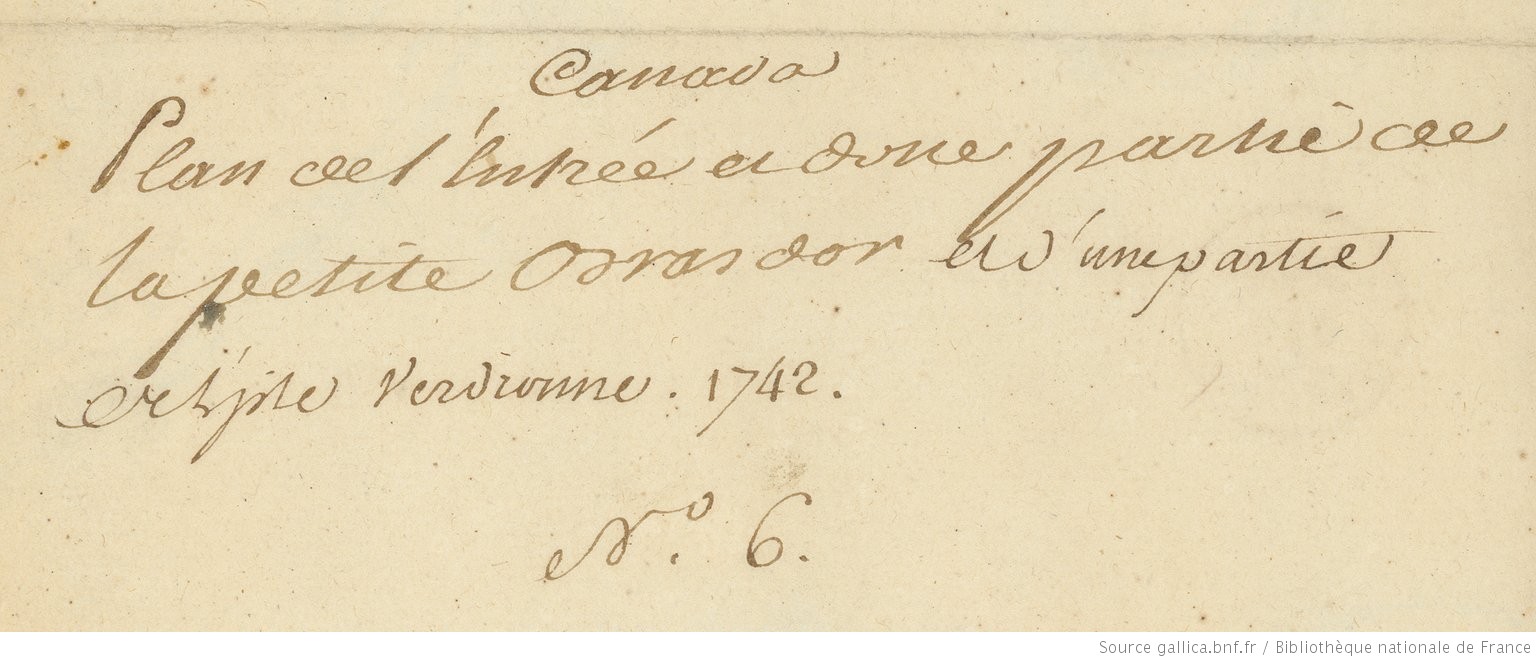 Canada
Plan de l'Entrée et d'une partie de
la petite Brasdor et d'une partie
de l'isle Verdronne. 1742.
N.º 6.
Source gallica.bnf.fr / Bibliothèque nationale de France